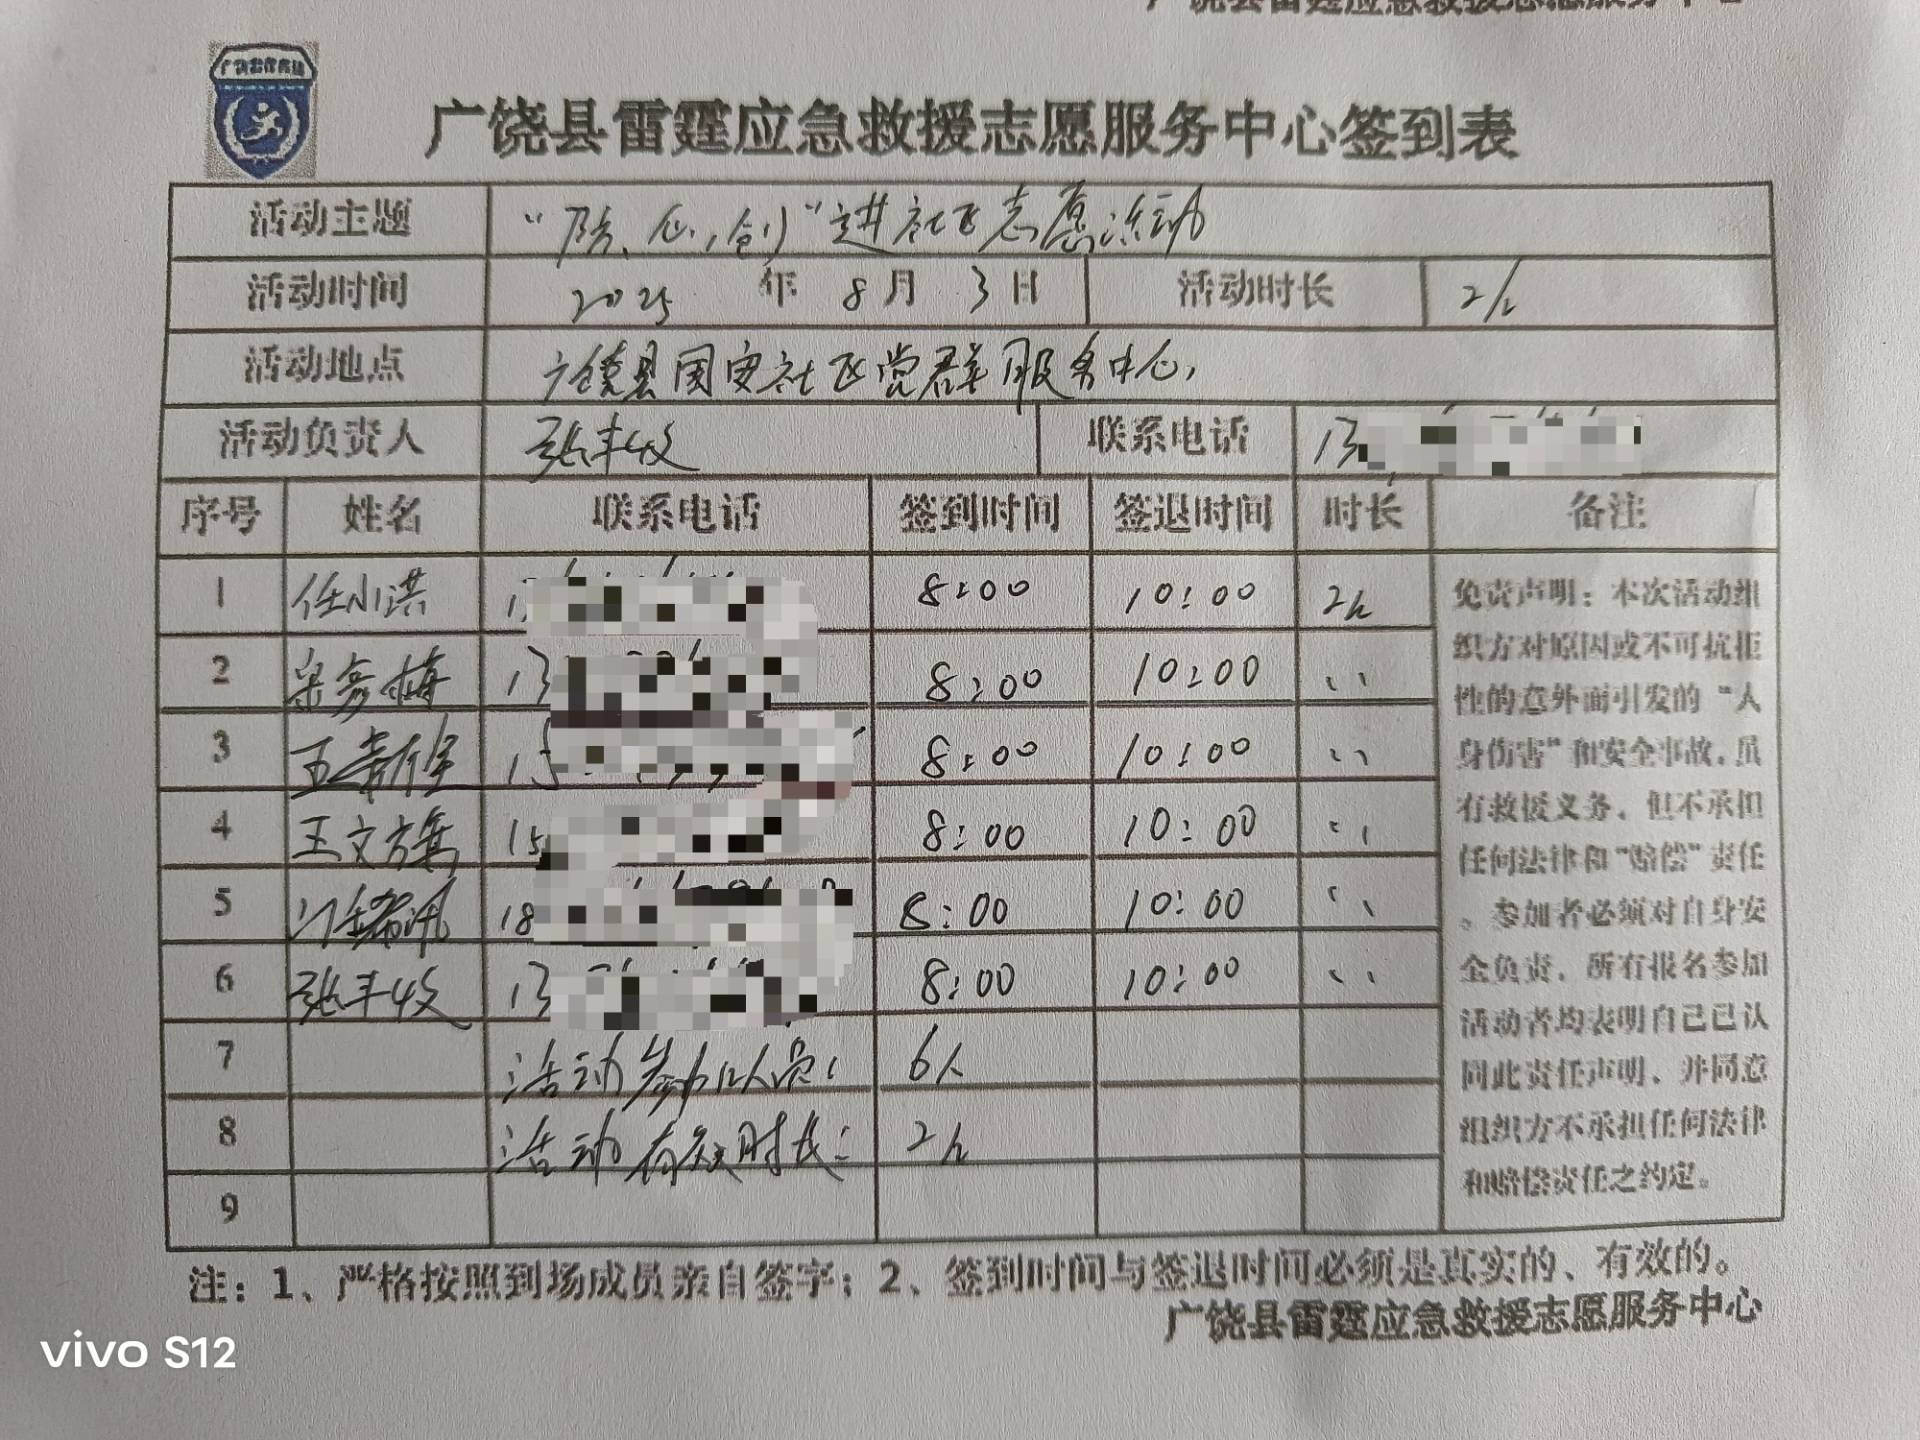 广饶县雷霆应急救援志愿服务中心
广饶县雷霆应急救援志愿服务中心签到表
活动主题 "防、心、创"进社区志愿活动
活动时间 2025 年 8 月 3 日 活动时长 2h
活动地点 广饶县国安社区党群服务中心,
活动负责人 张丰收 联系电话 13
序号 姓名 联系电话 签到时间 签退时间 时长 备注
1 任小洪 1 8:00 10:00 2h
2 梁彦梅 13 8:00 10:00 、、
3 15 8:00 10:00 、、
4 王文方 15 8:00 10:00 、、
5 18 8:00 10:00 、、
6 张丰收 13 8:00 10:00 、、
7 活动参加人员: 6人
8 活动有效时长: 2h
9
免责声明：本次活动组
织方对原因或不可抗拒
性的意外面引发的“人
身伤害”和安全事故，虽
有救援义务，但不承担
任何法律和“赔偿”责任
。参加者必须对自身安
全负责，所有报名参加
活动者均表明自己已认
同此责任声明、并同意
组织方不承担任何法律
和赔偿责任之约定。
注：1、严格按照到场成员亲自签字；2、签到时间与签退时间必须是真实的、有效的。
广饶县雷霆应急救援志愿服务中心
vivo S12